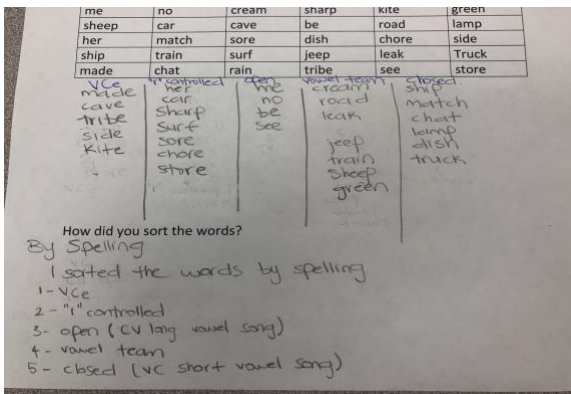 me no cream sharp kite green
sheep car cave be road lamp
her match sore dish chore side
ship train surf jeep leak Truck
made chat rain tribe see store
VCe
made
cave
tribe
side
kite
"r" controlled
her
car
sharp
surf
sore
chore
store
open
me
no
be
see
vowel team
cream
road
leak
jeep
train
sheep
green
closed
ship
match
chat
lamp
dish
truck
How did you sort the words?
By Spelling
I sorted the words by spelling
1- VCe
2- "r" controlled
3- open (CV long vowel song)
4- vowel team
5- closed (VC short vowel song)